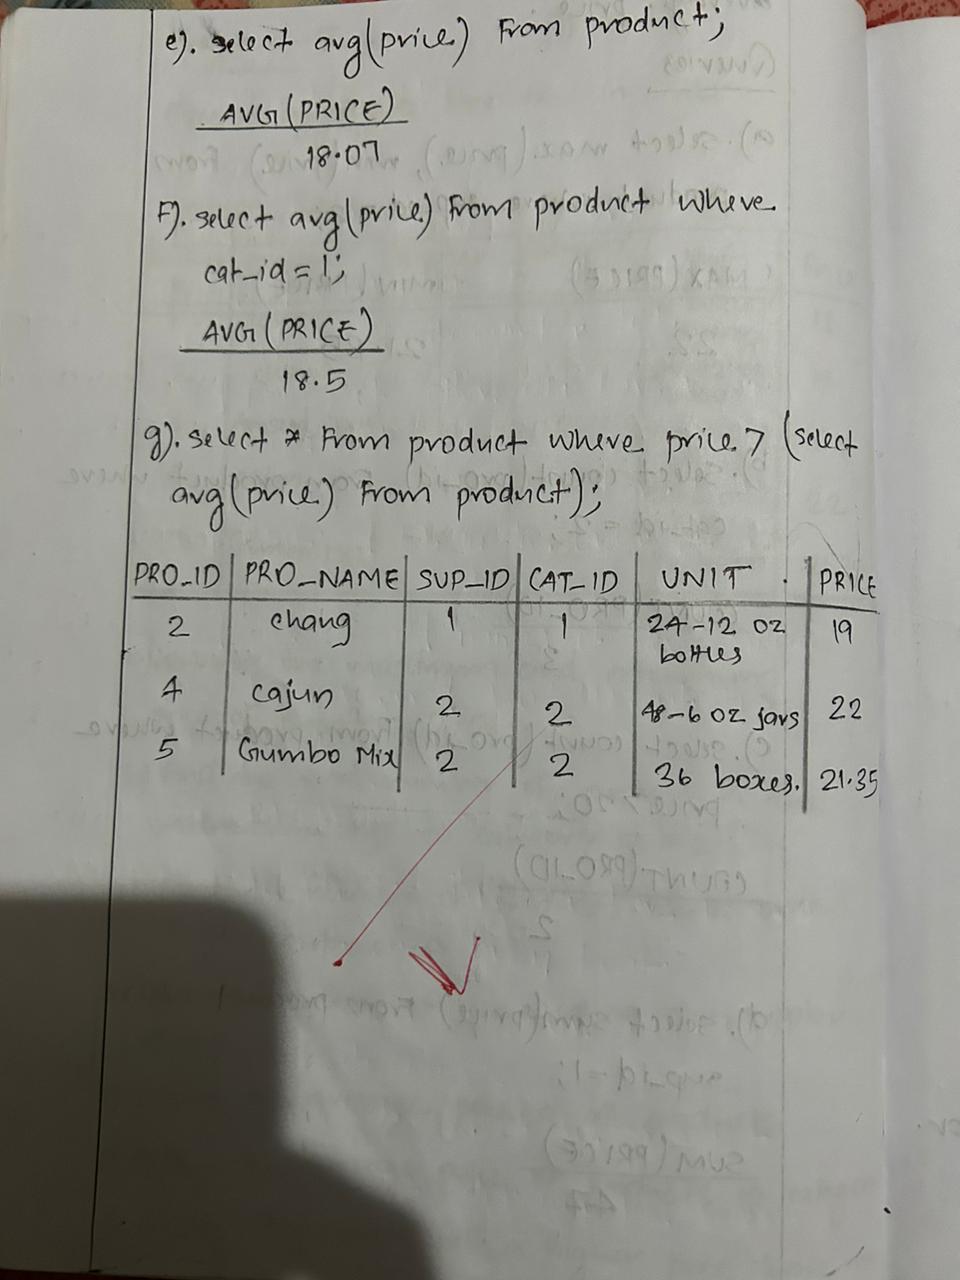 e). select avg(price) From product;
AVG(PRICE)
18.07
F). select avg(price) From product where
cat_id = 1;
AVG(PRICE)
18.5
g). select * From product where price > (select
avg(price) From product);
PRO_ID PRO_NAME SUP_ID CAT_ID UNIT PRICE
2 chang 1 1 24-12 oz bottles 19
4 cajun 2 2 48-6 oz jars 22
5 Gumbo Mix 2 2 36 boxes. 21.35